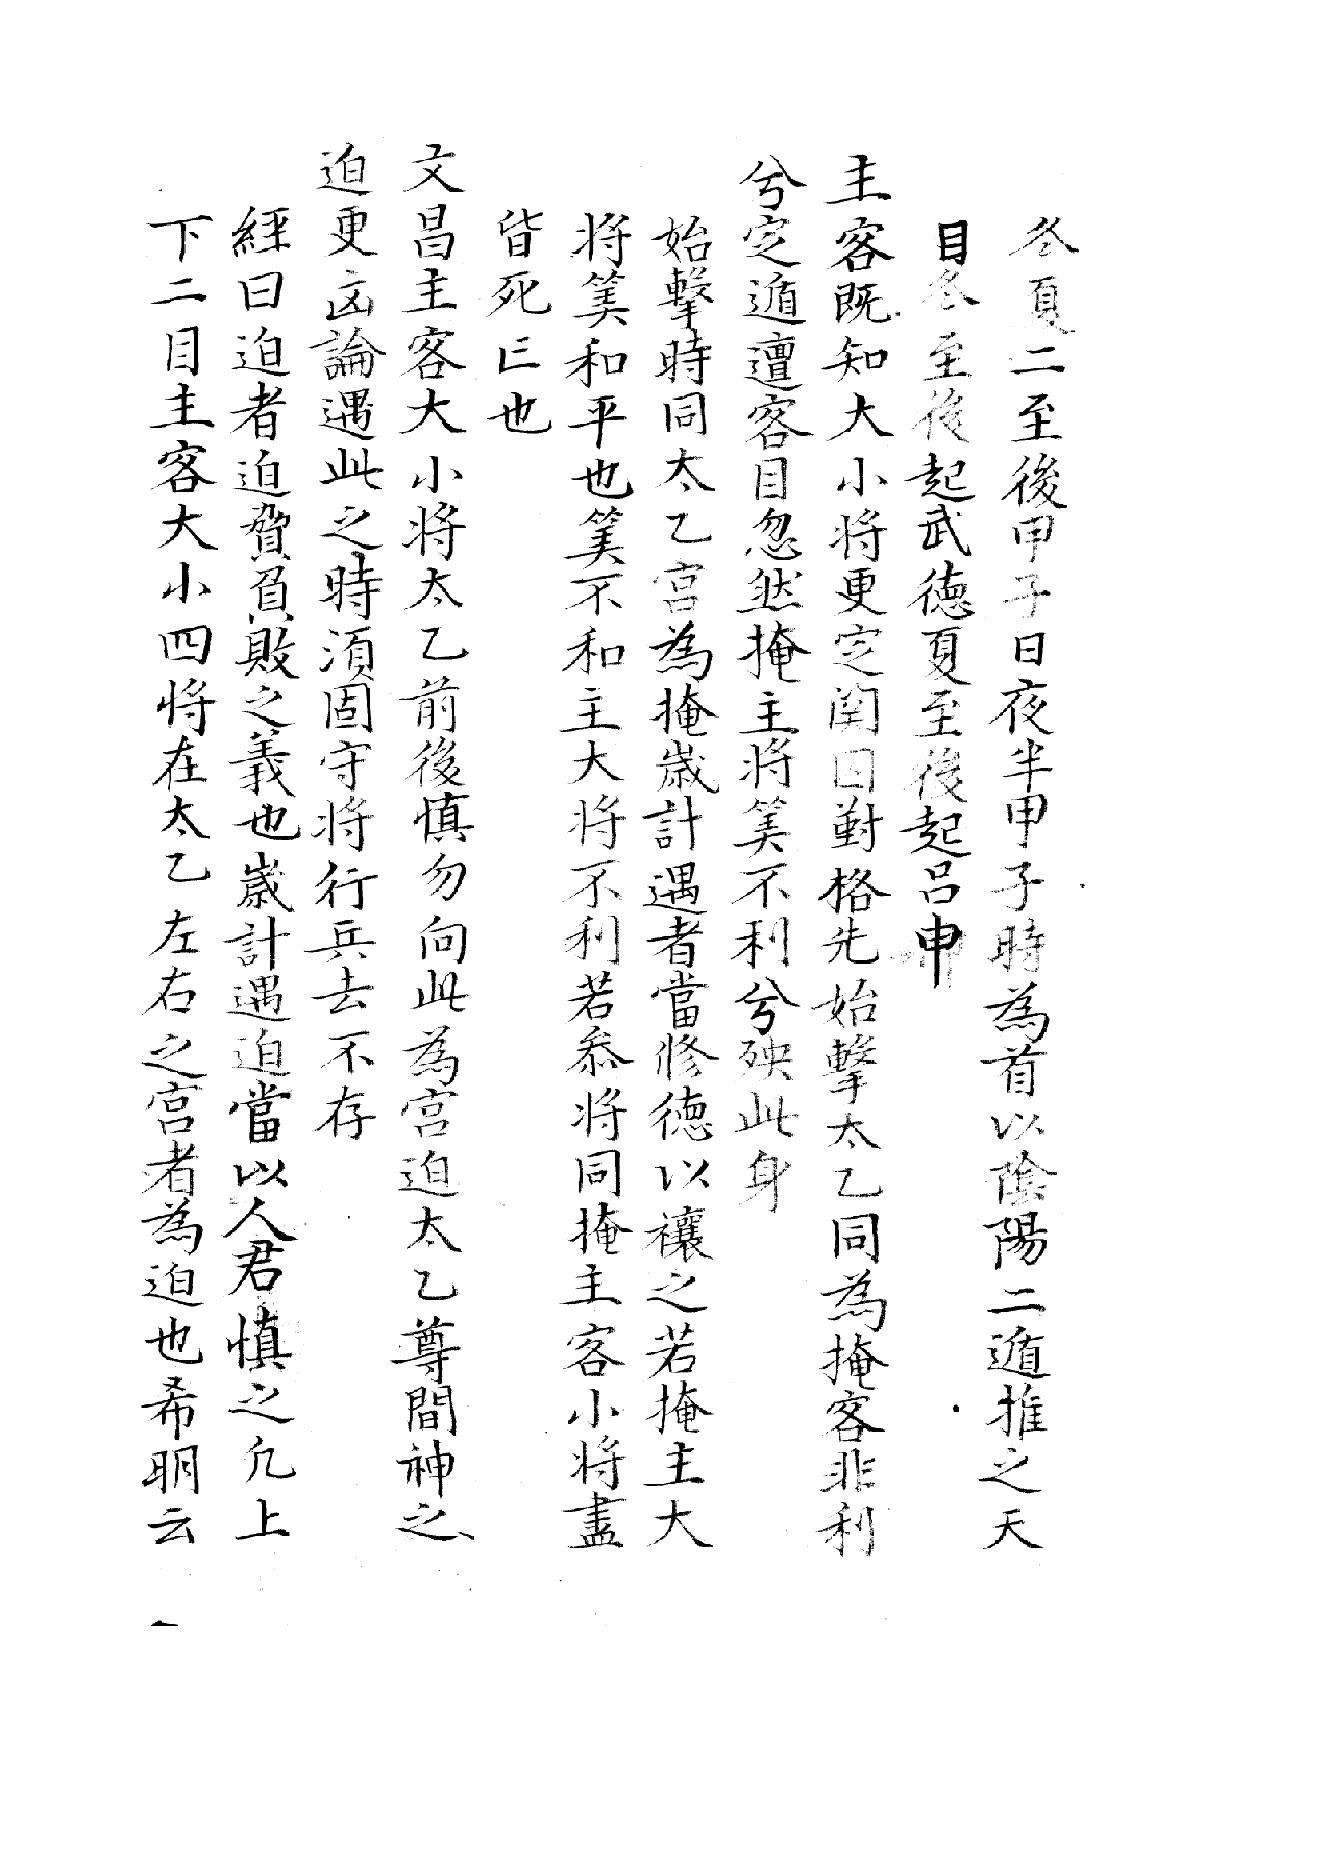 冬夏二至後甲子日夜半甲子時為首以陰陽二遁推之天
目冬至後起武德夏至後起呂申
主客既知大小将更定関囚對格先始擊太乙同為掩客非利
兮定遁遭客目忽然掩主将筭不利兮殃此身
始擊時同太乙宮為掩歲計遇者當修德以禳之若掩主大
将筭和平也筭不和主大将不利若叅将同掩主客小将盡
皆死亡也
文昌主客大小将太乙前後慎勿向此為宮迫太乙尊間神之
迫更㐫論遇此之時須固守将行兵去不存
經曰迫者迫貲負敗之義也歲計遇迫當以人君慎之凢上
下二目主客大小四将在太乙左右之宮者為迫也希明云